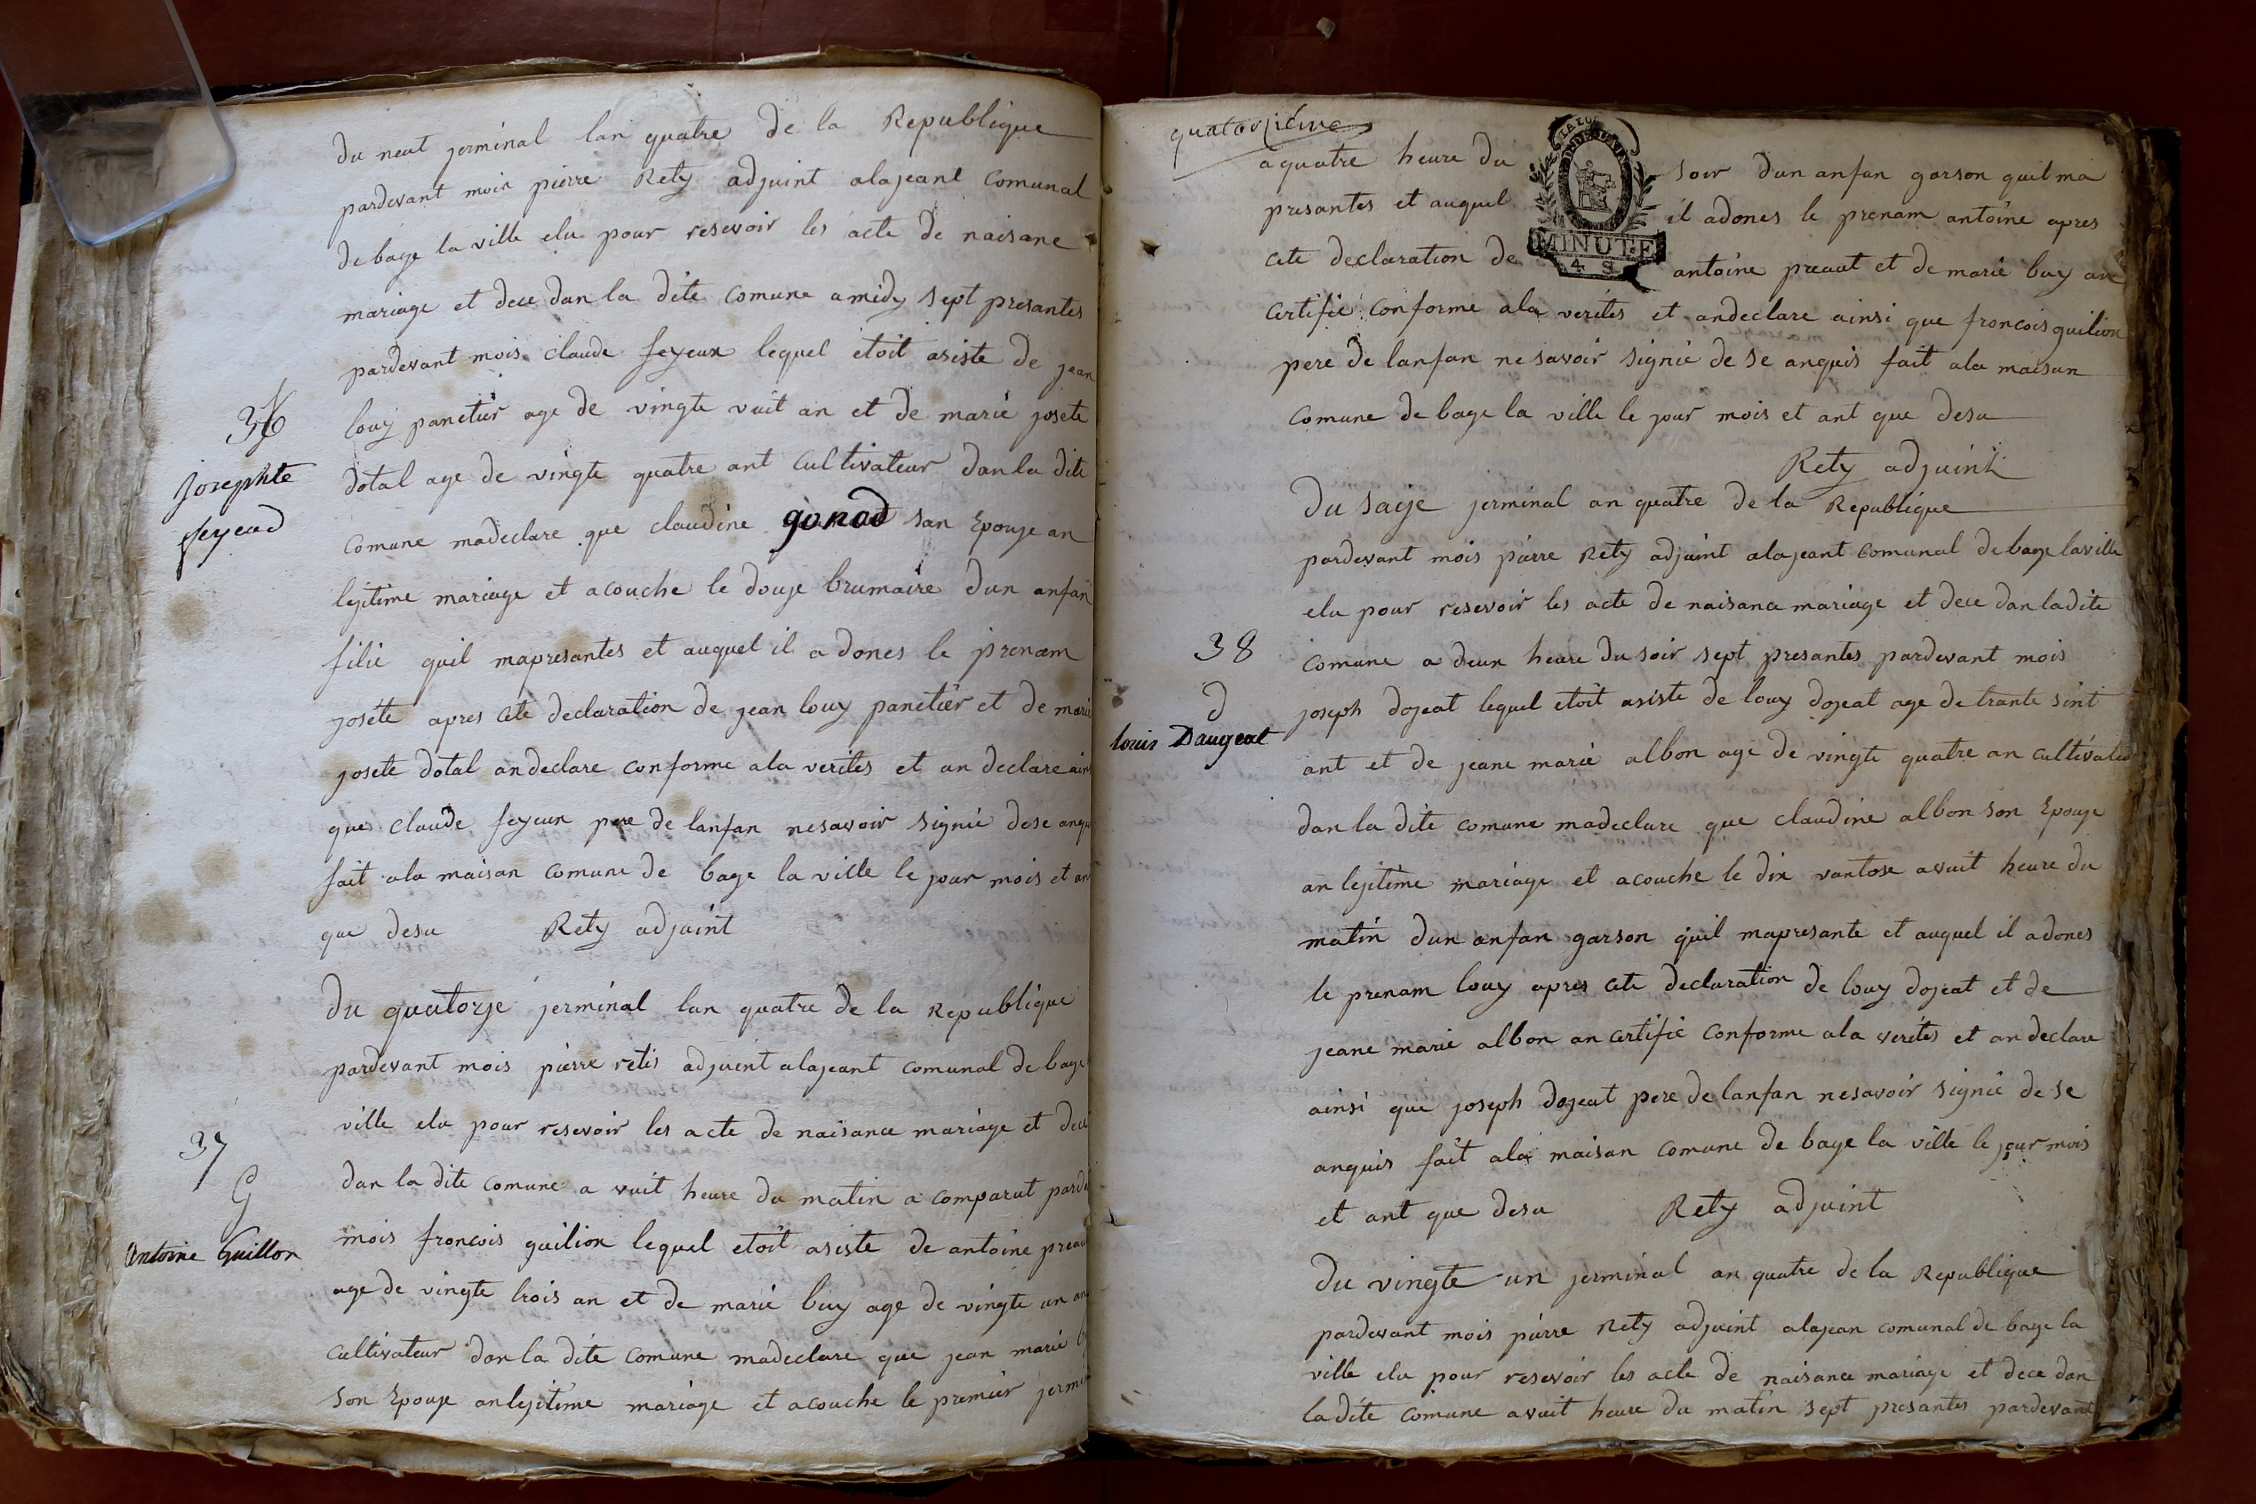 du neut jerminal lan quatre de la Republique
pardevant mois pierre Rety adjuint alajeant comunal
de bage la ville elu pour resevoir les acte de naisane
mariage et dece dan la dite comune amidy sept presantes
pardevant mois claude feyeux lequel etoit asiste de jean
36
louy panetier age de vingte vuit an et de marie josete
josephte
feyeud
dotal age de vingte quatre ant cultivateur dan la dite
comune madeclare que claudine gonod son Epouje an
lejitime mariage et acouche le douje brumaire dun anfan
filie quil mapresantes et auquel il a dones le prenam
josete apres cete declaration de jean louy panetier et de marie
josete dotal andeclare conforme ala verites et an declare ains
que claude feyeux pere de lanfan nesavoir signié dese anqui
fait ala maison comune de bage la ville le jour mois et ant
que desu Rety adjuint
du quatorje jerminal lan quatre de la Republique
pardevant mois pierre retis adjuint alajeant comunal de bage
ville elu pour resevoir les acte de naisance mariage et dece
37
G
Antoine Guillon
dan la dite comune a vuit heure du matin a comparut parde
mois francois guilion lequel etoit asiste de antoine preaut
age de vingte trois an et de marie buy age de vingte un an
cultivateur dan la dite comune madeclare que jean marie
son Epouje anlejitime mariage et acouche le premier jermi
quatorzième
a quatre heure du soir dun anfan garson quil ma
presantes et auquel il adones le prenam antoine apres
cete declaration de antoine preaut et de marie buy an
MINUTE
4 S
certifie conforme ala verites et andeclare ainsi que francois guilion
pere de lanfan ne savoir signié de se anquis fait ala maison
comune de bage la ville le jour mois et ant que desu
Rety adjuint
Du saije jerminal an quatre de la Republique
pardevant mois pierre Rety adjuint alajeant comunal de bage laville
elu pour resevoir les acte de naisance mariage et dece dan ladite
38
d
Louis Daugeat
comune a deux heure du soir sept presantes pardevant mois
joseph dojeat lequel etoit asiste de louy dojeat age de trante sint
ant et de jeane marie albon age de vingte quatre an cultivateu
dan la dite comune madeclare que claudine albon son Epouje
an lejitime mariage et acouche le dix vantose avuit heure du
matin dun anfan garson quil mapresante et auquel il adones
le prenam louy apres cete declaration de louy dojeat et de
jeane marie albon an certifie conforme ala verites et an declare
ainsi que joseph dojeat pere de lanfan nesavoir signié de se
anquis fait ala maison comune de bage la ville le jour mois
et ant que desu Rety adjuint
Du vingte un jerminal an quatre de la Republique
pardevant mois pierre Rety adjuint alajean comunal de bage la
ville elu pour resevoir les acte de naisance mariage et dece dan
ladite comune avuit heure du matin sept presantes pardevant